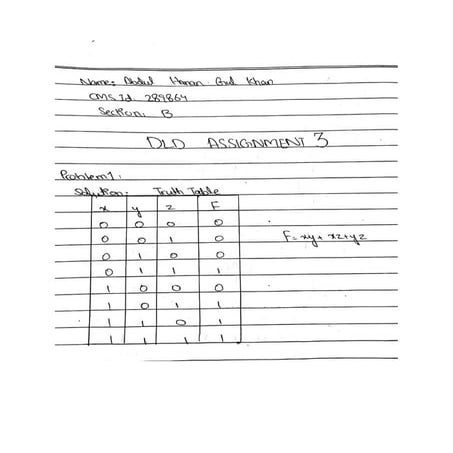 Name: Abdul Hanan Gul Khan
CMS Id 289864
Section: B
DLD ASSIGNMENT 3
Problem 1:
Solution: Truth Table
x y z F
0 0 0 0
0 0 1 0 F = xy + xz + yz
0 1 0 0
0 1 1 1
1 0 0 0
1 0 1 1
1 1 0 1
1 1 1 1